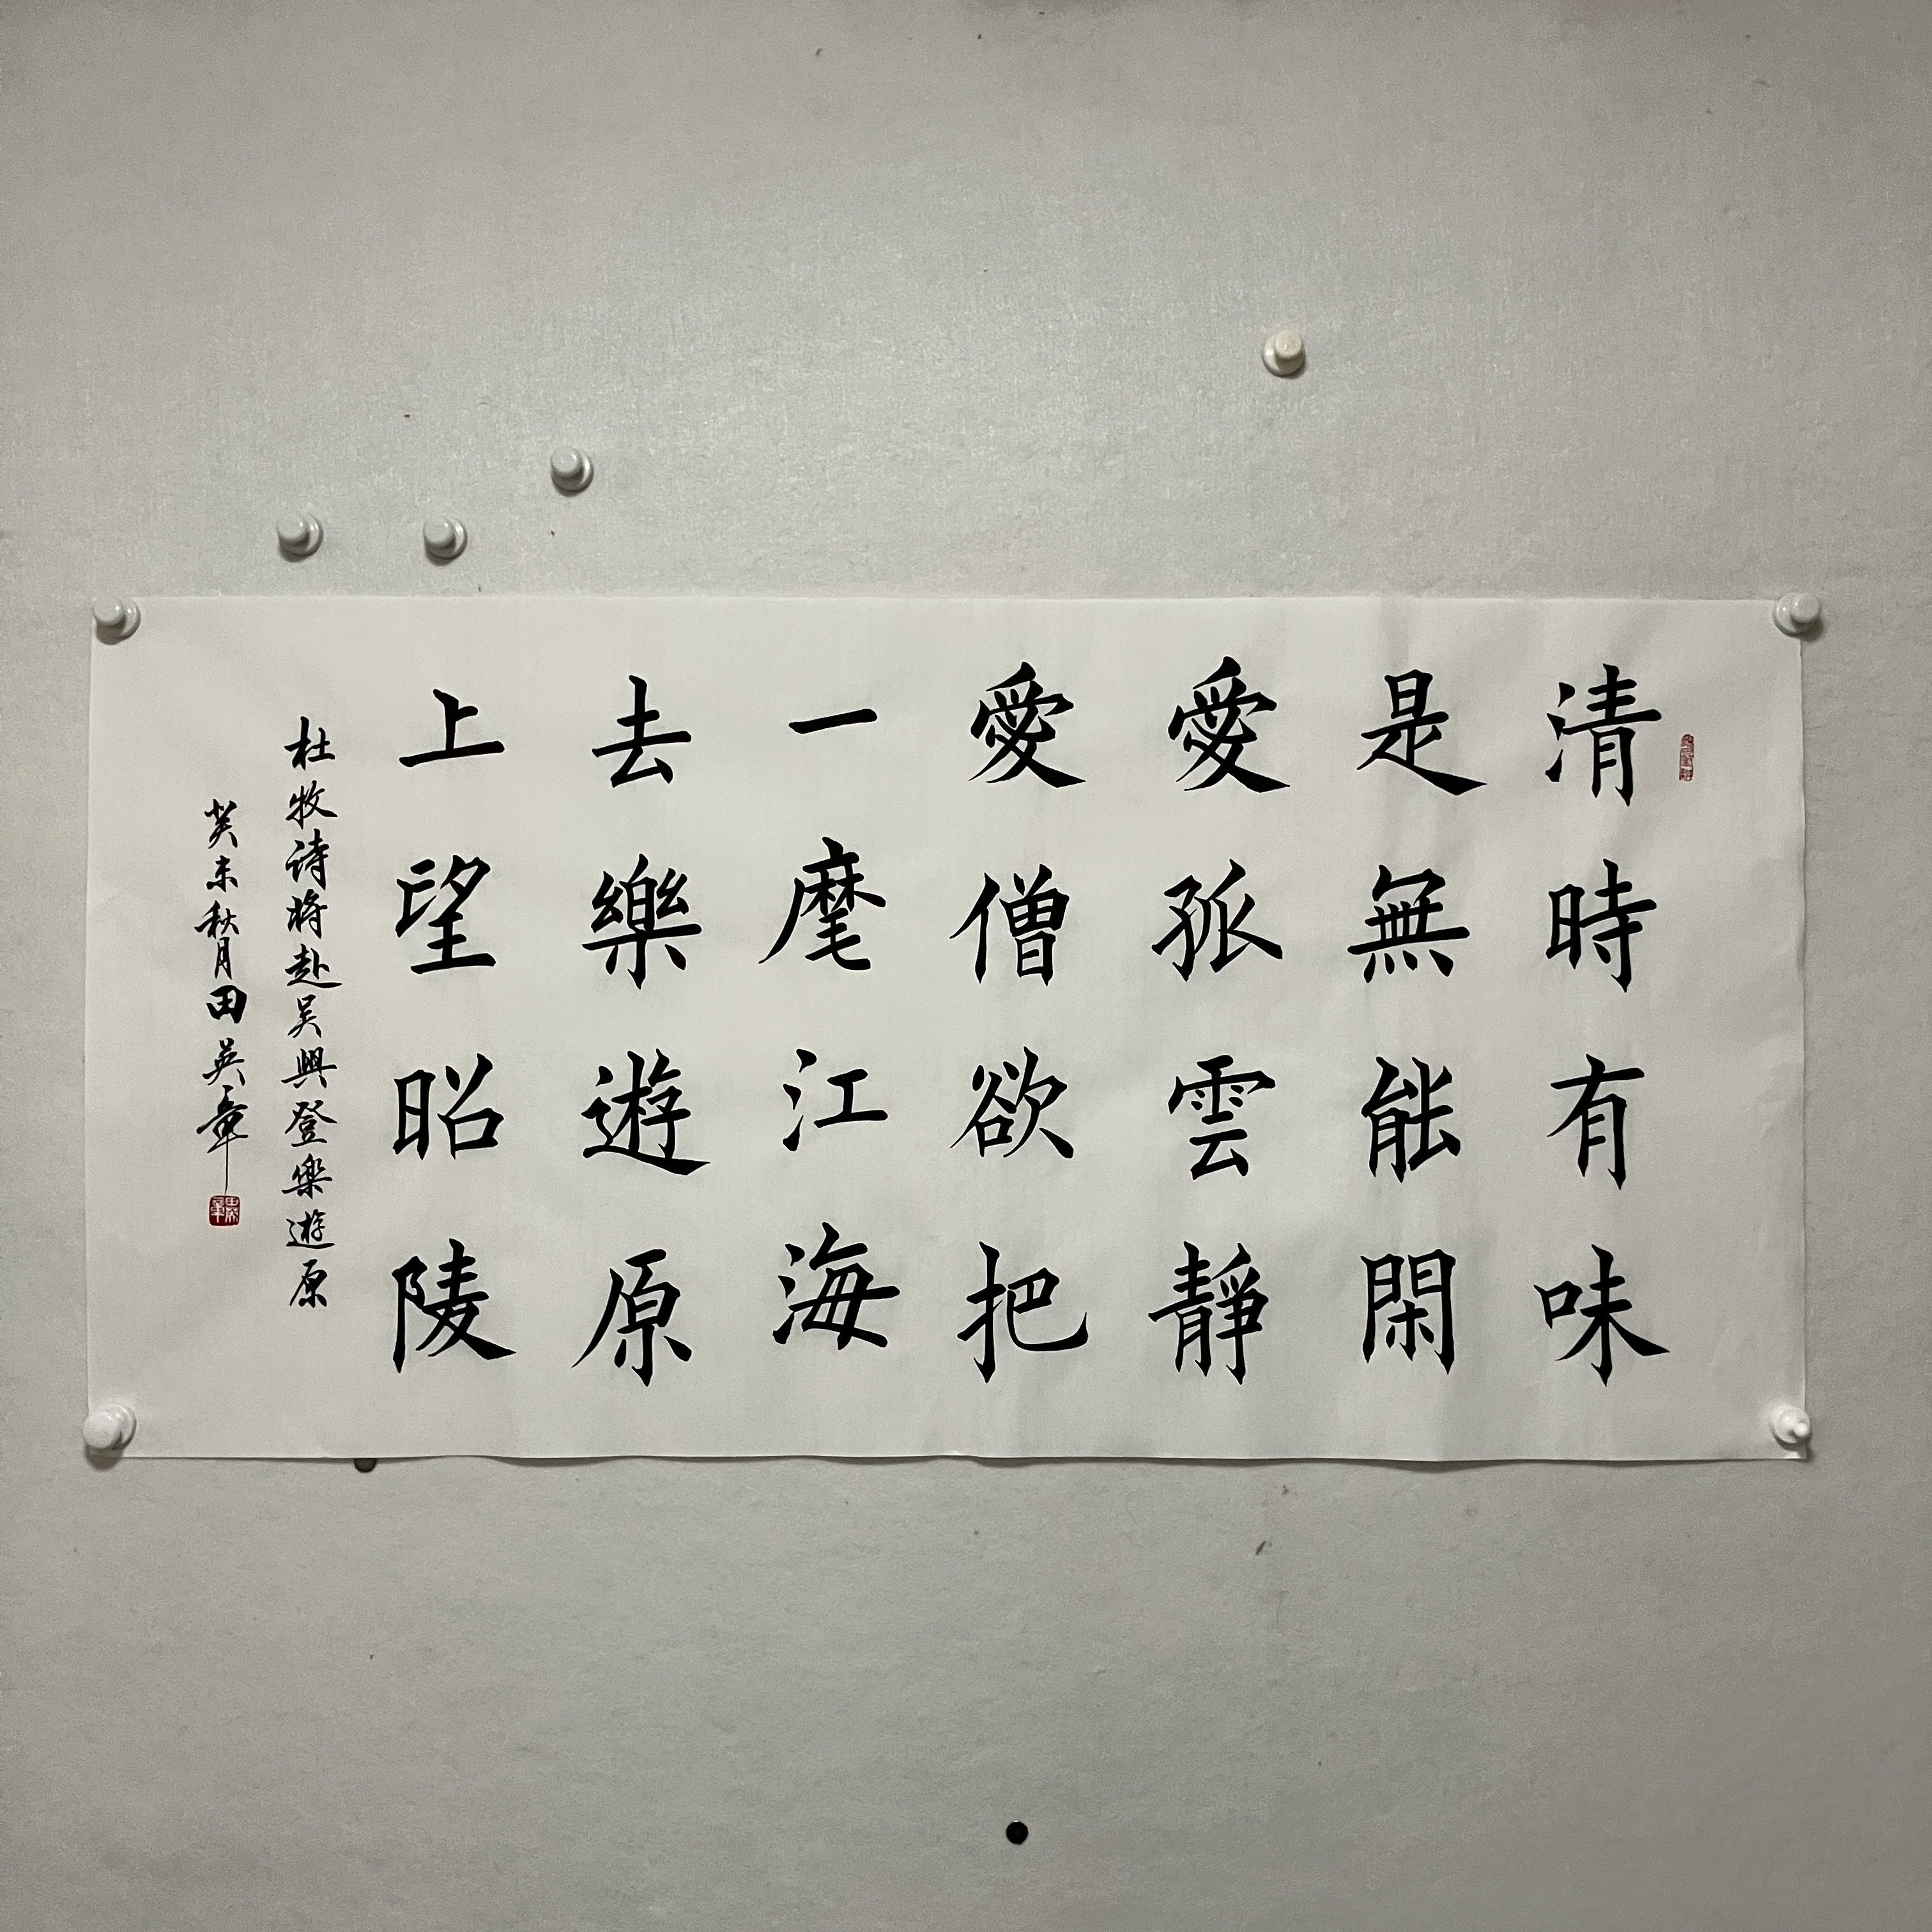 清時有味
是無能閑
愛孤雲靜
愛僧欲把
一麾江海
去樂遊原
上望昭陵
杜牧诗将赴吴興登樂遊原
癸未秋月田英章